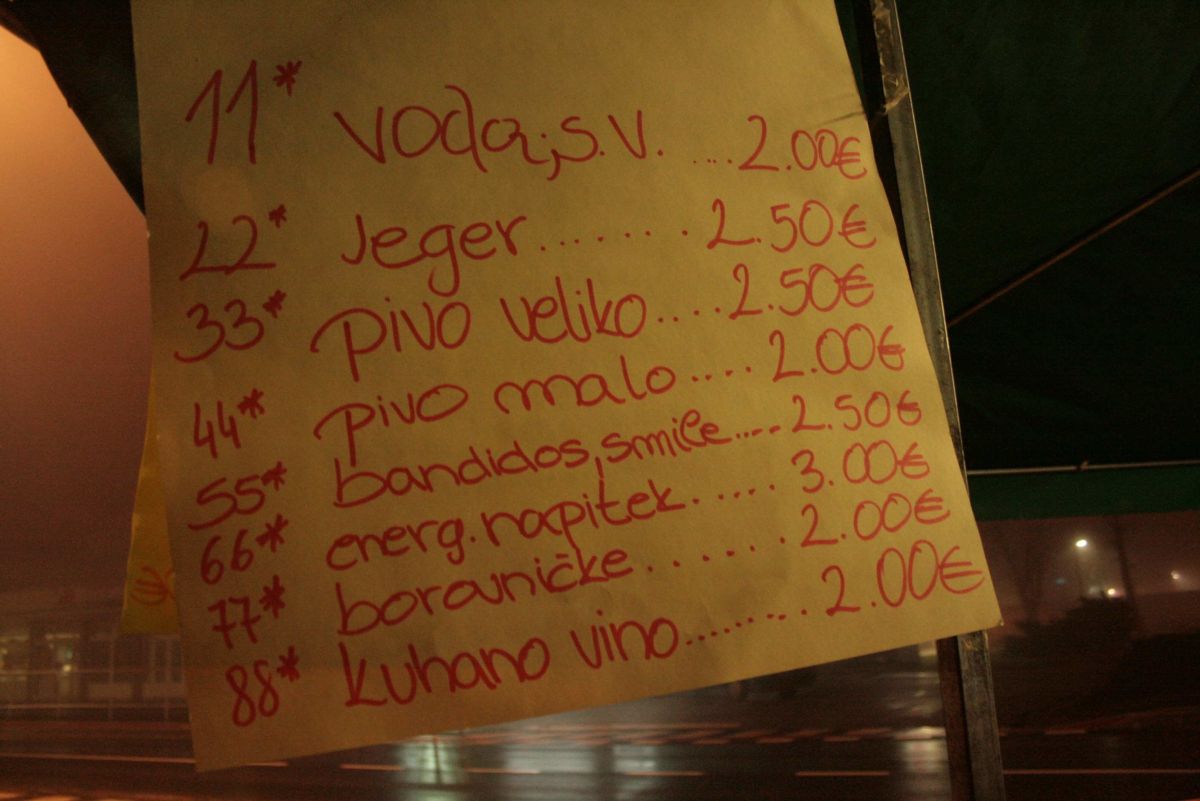 11* voda, s.v. ....2.00€
22* Jeger........2.50€
33* pivo veliko....2.50€
44* pivo malo....2.00€
55* bandidos, smile....2.50€
66* energ. napitek.....3.00€
77* borovničke.......2.00€
88* kuhano vino.......2.00€
€